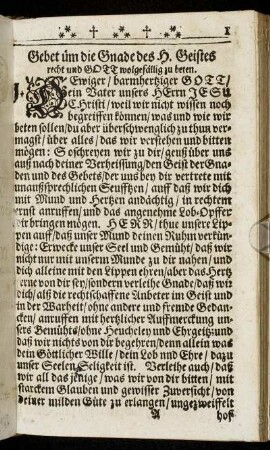 ** ✝ ** ✝ ** 1
Gebet üm die Gnade des H. Geistes
recht und GOTT wolgefällig zu beten.
1. Ewiger/ barmhertziger GOTT/
ein Vater unsers HErrn JESU
CHristi/ weil wir nicht wissen noch
begreiffen können/ was und wie wir
beten sollen/ du aber überschwenglich zu thun ver-
magst/ über alles/ das wir verstehen und bitten
mögen: So schreyen wir zu dir/ geuß über uns
auß nach deiner Verheissung/ den Geist der Gna-
den und des Gebets/ der uns bey dir vertrete mit
unaußsprechlichen Seufftzen/ auff daß wir dich
mit Mund und Hertzen andächtig/ in rechtem
ernst anruffen/ und das angenehme Lob-Opffer
dir bringen mögen. HERR/ thue unser Lip-
pen auff/ daß unser Mund deinen Ruhm verkün-
dige: Erwecke unser Seel und Gemüht/ daß wir
nicht nur mit unserm Munde zu dir nahen/ und
dich alleine mit den Lippen ehren/ aber das Hertz
ferne von dir sey/ sondern verleihe Gnade/ daß wir
dich/ als die rechtschaffene Anbeter im Geist und
in der Warheit/ ohne andere und fremde Gedan-
cken/ anruffen mit hertzlicher Auffmerckung un-
sers Gemühts/ ohne Heucheley und Ehrgeitz/ und
daß wir nichts von dir begehren/ denn allein was
dein Göttlicher Wille/ dein Lob und Ehre/ dazu
unser Seelen Seligkeit ist. Verleihe auch/ daß
wir all das jenige/ was wir von dir bitten/ mit
starckem Glauben und gewisser Zuversicht/ von
deiner milden Güte zu erlangen/ ungezweiffelt
A hof-